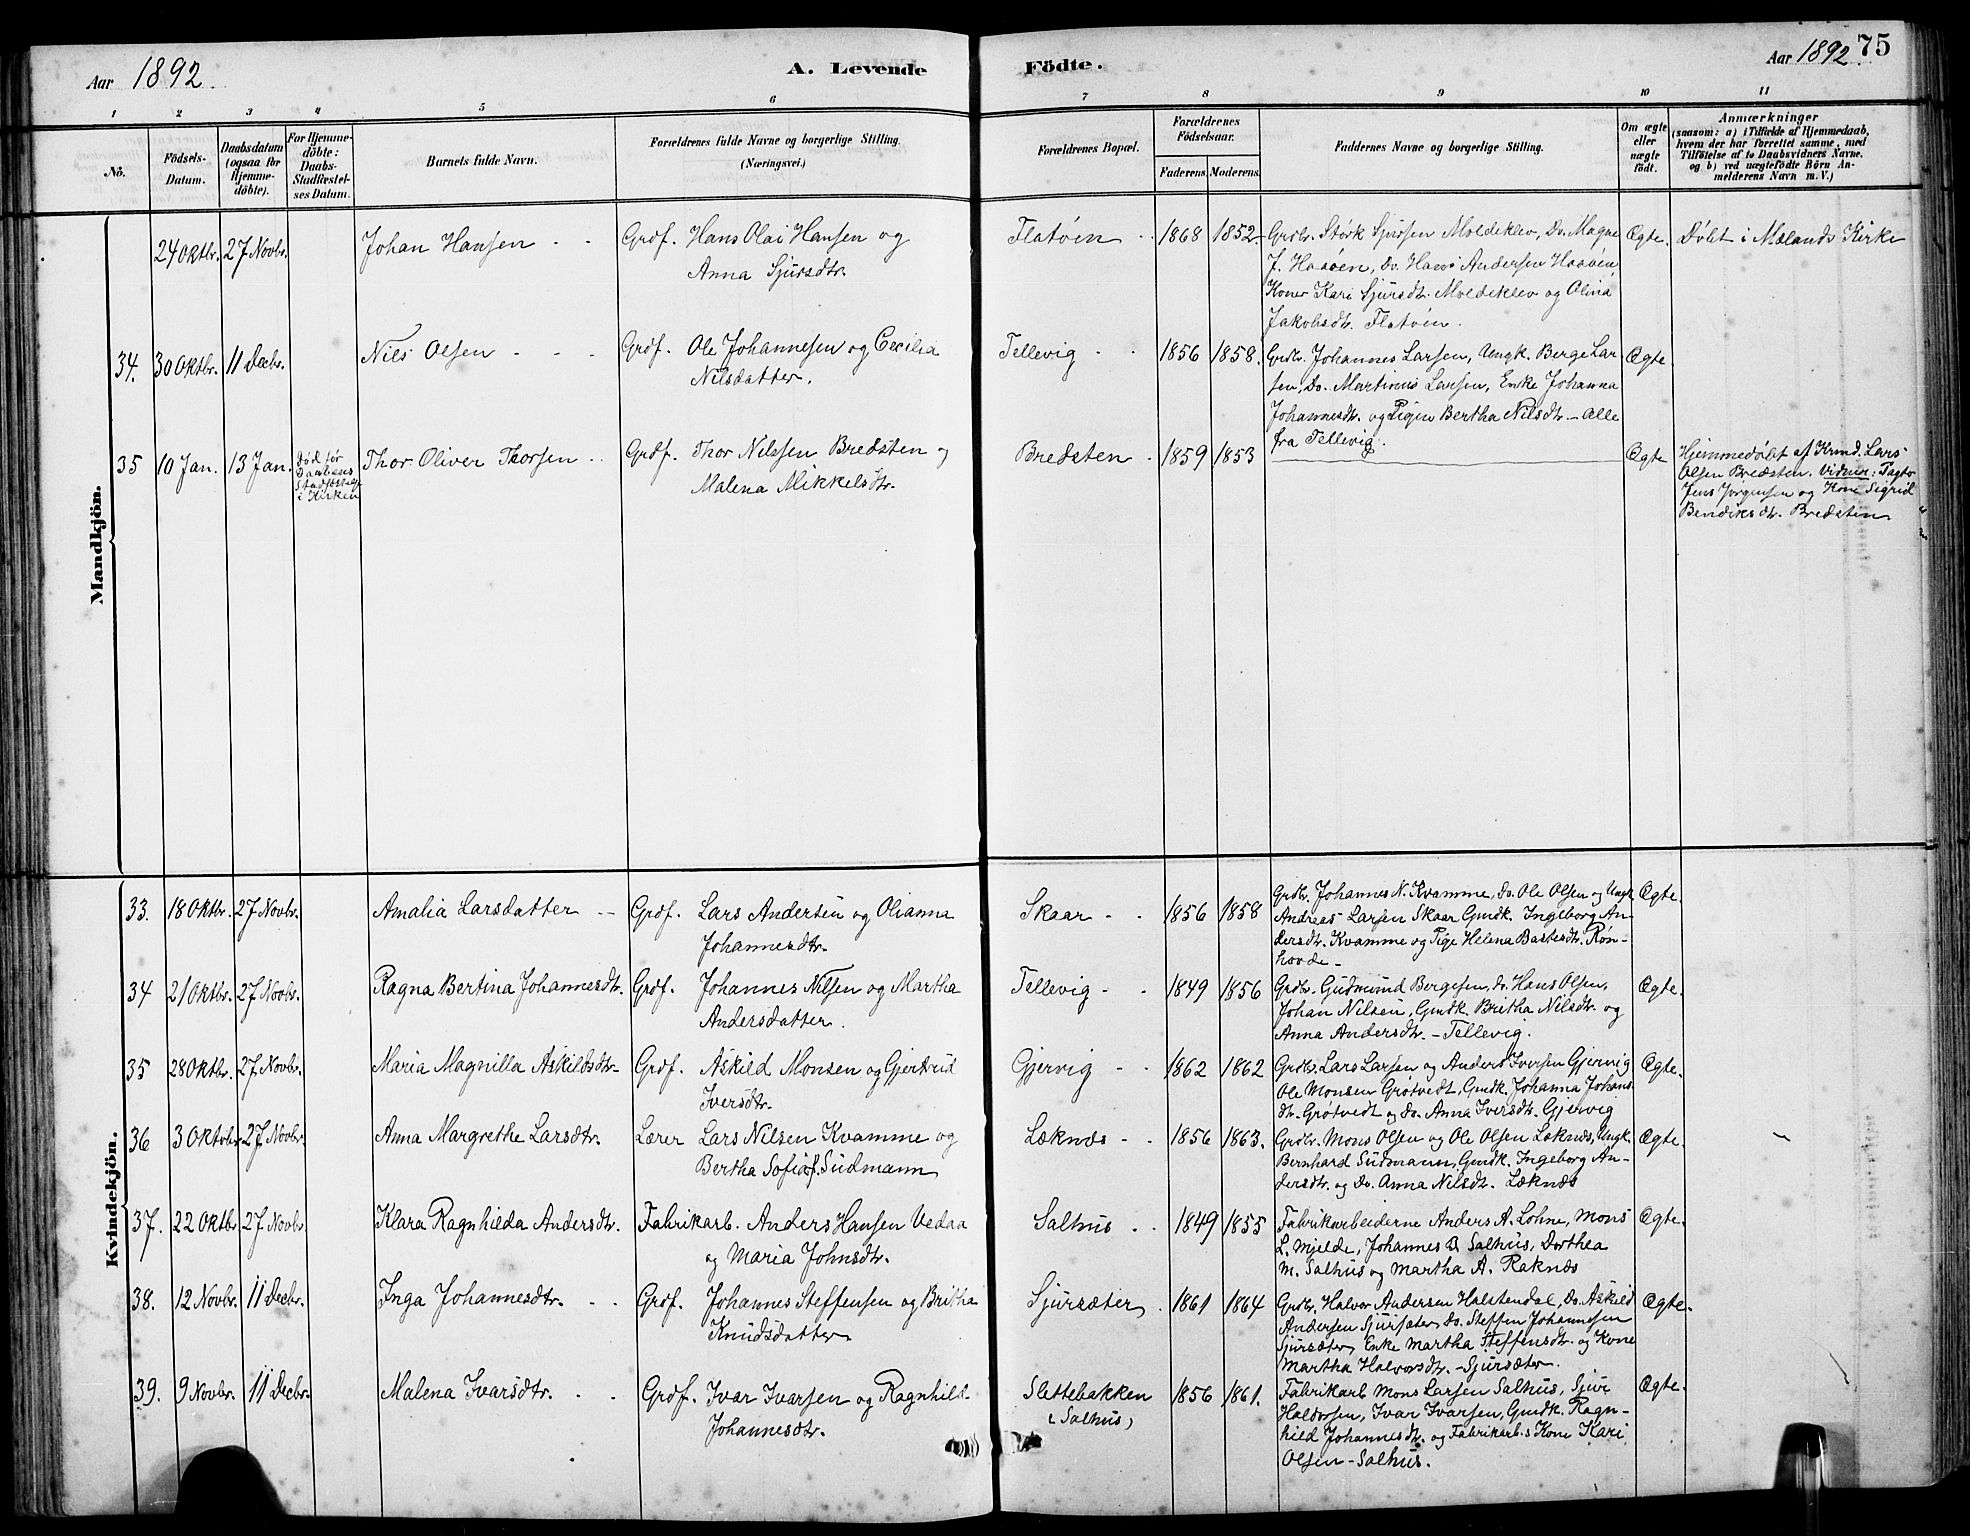 Aar 1892. A. Levende Födte. Aar 1892. 75
1 2 3 4 5 6 7 8 9 10 11
No.
Födsels-
Datum.
Daabsdatum
(ogsaa for
Hjemme-
döbte).
For Hjemme-
döbte:
Daabs-
Stadfæstel-
ses Datum.
Barnets fulde Navn.
Forældrenes fulde Navne og borgerlige Stilling.
(Næringsvei.)
Forældrenes Bopæl.
Forældrenes
Födselsaar.
Faderens. Moderens.
Faddernes Navne og borgerlige Stilling.
Om ægte
eller
uægte
födt.
Anmærkninger
(saasom: a) i Tilfælde af Hjemmedaab,
hvem der har forrettet samme, med
Tilföielse af to Daabsvidners Navne,
og b) ved uægtefödte Börn An-
melderens Navn m. V.)
Mandkjön.
24 Oktbr. 27 Novbr. Johan Hansen - - Grdf. Hans Olai Hansen og
Anna Sjursdtr.
Flatøen - 1868 1852
Grdbr. Størk Sjursen Moldeklev, Do. Magne
J. Haaøen, Do. Hans Andersen Haaøen,
Koner Kari Sjursdtr. Moldeklev og Olina
Jakobsdtr. Flatøen.
Ægte. Døbt i Mælands Kirke
34. 30 Oktbr. 11 Decbr. Nils Olsen - - - Grdf. Ole Johannesen og Cecilia
Nilsdatter.
Tellevig - - 1856 1858.
Grdbr. Johannes Larsen, Ungk. Berge Lar-
sen, Do. Martinus Larsen, Enke Johanna
Johannesdtr. og Pigen Bertha Nilsdtr. - alle
fra Tellevig.
Ægte
35 10 Jan. 13 Jan. Død før
Daabens
Stadfæstelse
i Kirken
Thor Oliver Thorsen - - Grdf. Thor Nilssen Bredsten og
Malena Mikkelsdtr.
Bredsten - 1859 1853
Ægte
Hjemmedøbt af Krmd. Lars
Olsen Bredsten. Vidner:
Jens Jørgensen og Kone Sigrid
Bendiksdtr. Bredsten
Kvindekjön.
33. 18 Oktbr. 27 Novbr. Amalia Larsdatter - - Grdf. Lars Andersen og Olianna
Johannesdtr.
Skaar - - 1856 1858
Grdbr. Johannes N. Kvamme, Do. Ole Olsen og Ungk.
Andreas Larsen Skaar Gmdk. Ingeborg An-
dersdtr. Kvamme og Pige Helena Bastesdtr. Røn-
hovde -
Ægte.
34 21 Oktbr. 27 Novbr. Ragna Bertina Johannesdtr. Grdf. Johannes Nilsen og Martha
Andersdatter.
Tellevig - - 1849 1856
Grdbr. Gudmund Bergesen, Do. Hans Olsen,
Johan Nilsen, Gmdk. Britha Nilsdtr. og
Anna Andersdtr. - Tellevig.
Ægte.
35 28 Oktbr. 27 Novbr. Maria Magnilla Askildsdtr. Grdf. Askild Monsen og Gjertrud
Iversdtr.
Gjervig - - 1862 1862
Grdbr. Lars Larsen og Anders Iversen Gjervig
Ole Monsen Grøtvedt, Gmdk. Johanna Johans
dtr. Grøtvedt og Do. Anna Iversdtr. Gjervig
Ægte.
36 3 Oktobr 27 Novbr. Anna Margrethe Larsdtr. Lærer Lars Nilsen Kvamme og
Bertha Sofia f. Sudmann
Læknæs - - 1856 1863.
Grdbr. Mons Olsen og Ole Olsen Læknæs, Ungk.
Bernhard Sudmann, Gmdk. Ingeborg An-
dersdtr. og Do. Anna Nilsdtr. Læknæs
Ægte.
37. 22 Oktbr 27 Novbr. Klara Ragnhilda Andersdtr. Fabrikarb. Anders Hansen Vedaa
og Maria Johnsdtr.
Salhus - - 1849 1855
Fabrikarbeiderne Anders A. Lohne, Mons
L. Mjelde, Johannes B. Salhus, Dorthea
M. Salhus og Martha A. Raknæs
Ægte.
38. 12 Novbr. 11 Decbr. Inga Johannesdtr. - - Grdf. Johannes Steffensen og Britha
Knudsdatter
Sjursæter - 1861 1864
Grdbr. Halvor Andersen Halstendal, Do. Askild
Andersen Sjursæter, Do. Steffen Johannesen
Sjursæter, Enke Martha Steffensdtr. og Kone
Martha Halvorsdtr. - Sjursæter.
Ægte.
39. 9 Novbr. 11 Decbr. Malena Ivarsdtr. - - Grdf. Ivar Ivarsen og Ragnhild
Johannesdtr.
Slettebakken
(Salhus)
1856 1861.
Fabrikarb Mons Larsen Salhus, Sjur
Haldorsen, Ivar Ivarsen, Gmdk. Ragn-
hild Johannesdtr. og Fabrikarb.s Kone Kari
Olsen - Salhus.
Ægte.